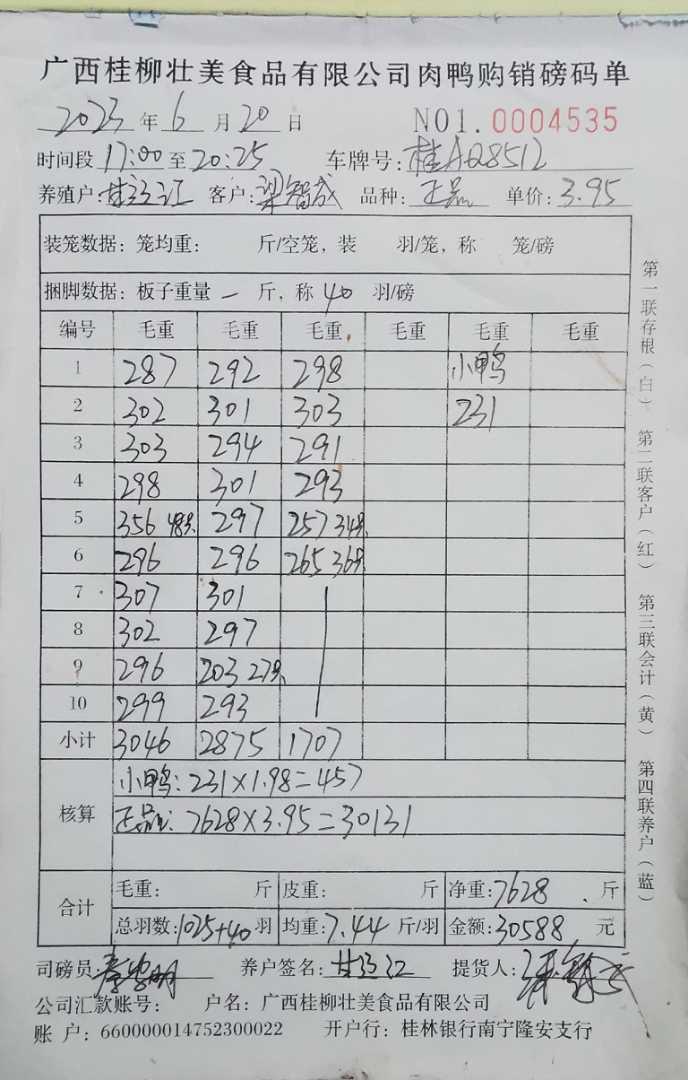 广西桂柳壮美食品有限公司肉鸭购销磅码单
2023 年 6 月 20 日 NO1.0004535
时间段 17:00 至 20:25 车牌号: 桂AQ8512
养殖户: 客户: 梁智成 品种: 正品 单价: 3.95
装笼数据: 笼均重: 斤/空笼, 装 羽/笼, 称 笼/磅
捆脚数据: 板子重量 一 斤, 称 40 羽/磅
编号 毛重 毛重 毛重 毛重 毛重 毛重
1 287 292 298 小鸭
2 302 301 303 231
3 303 294 291
4 298 301 293
5 356 48只 297 257 34只
6 296 296 265 36只
7 307 301
8 302 297
9 296 203 27只
10 299 293
小计 3046 2875 1707
核算
小鸭: 231×1.98=457
正品: 7628×3.95=30131
合计
毛重: 斤 皮重: 斤 净重: 7628 斤
总羽数: 1025+40 羽 均重: 7.44 斤/羽 金额: 30588 元
司磅员: 养户签名: 提货人:
公司汇款账号: 户名: 广西桂柳壮美食品有限公司
账 户: 660000014752300022 开户行: 桂林银行南宁隆安支行
第一联存根(白) 第二联客户(红) 第三联会计(黄) 第四联养户(蓝)